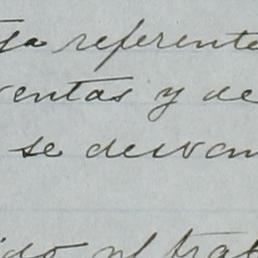 ya referente
ventas y de
se desvan
ido al trab